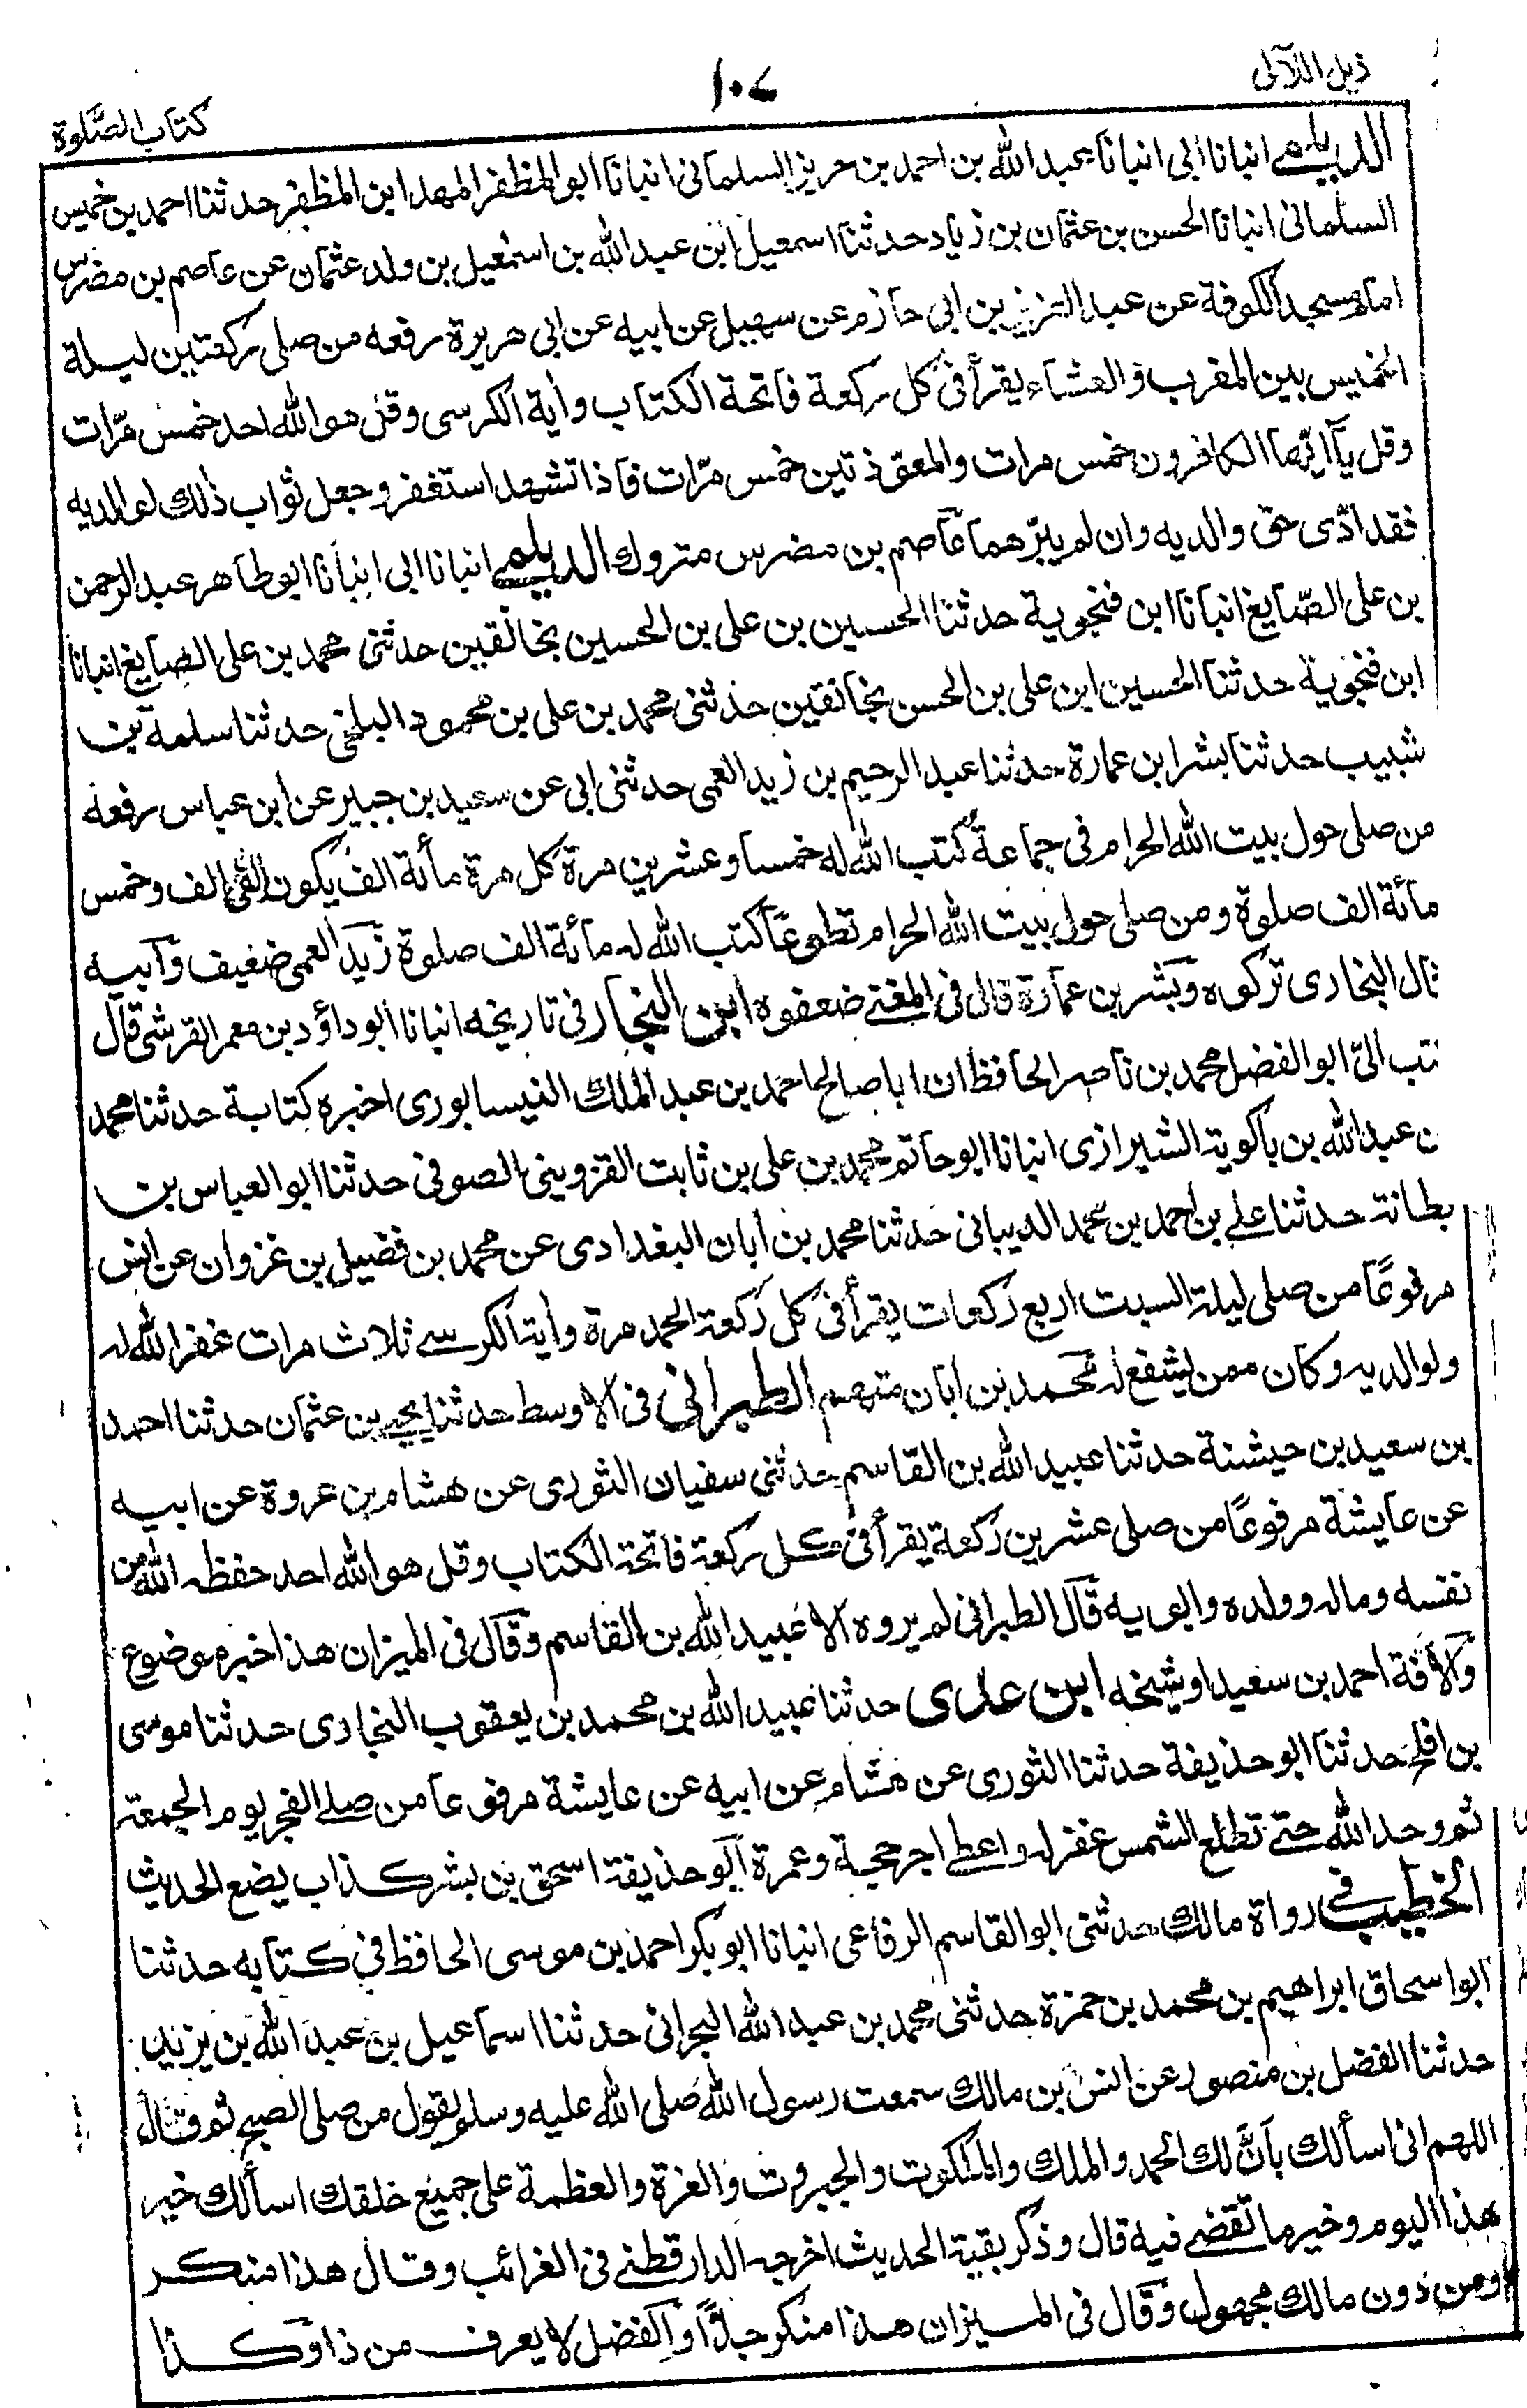 ذيل اللآلى
١٠٧
كتاب الصلوة
الديلمى انبانا ابى انبانا عبد الله بن احمد بن حريز السلمانى انبانا ابو المظفر المهدا ابن المظفر حدثنا احمد بن خميس
السلمانى انبانا الحسن بن عثمان بن زياد حدثنا اسمعيل ابن عبد الله بن اسمعيل بن ولد عثمان عن عاصم بن مضرس
امام مسجد الكوفة عن عبد العزيز بن ابى حازم عن سهيل عن ابيه عن ابى هريرة رفعه من صلى ركعتين ليلة
الخميس بين المغرب والعشاء يقرأ فى كل ركعة فاتحة الكتاب وأية الكرسى وقل هو الله احد خمس مرّات
وقل يآ ايّها الكافرون خمس مرات والمعوذتين خمس مرّات فاذا تشهد استغفر وجعل ثواب ذلك لوالديه
فقد ادّى حق والديه وان لم يبرّهما عاصم بن مضرس متروك الديلمى انبانا ابى انبأنا ابو طاهر عبد الرحمن
بن على الصّايغ انبانا ابن فنجوية حدثنا الحسين بن على بن الحسين بخانقين حدثنى محمد بن على الصايغ انبانا
ابن فنجوية حدثنا الحسين ابن على بن الحسن بخانقين حدثنى محمد بن على بن محمود البلخى حدثنا سلمة بن
شبيب حدثنا بشر ابن عمارة حدثنا عبد الرحيم بن زيد العمى حدثنى ابى عن سعيد بن جبير عن ابن عباس رفعه
من صلى حول بيت الله الحرام فى جماعة كتب الله له خمسا وعشرين مرة كل مرة مائة الف يكون الفى الف وخمس
مائة الف صلوة ومن صلى حول بيت الله الحرام تطوعًا كتب الله له مائة الف صلوة زيد العمى ضعيف وآبيه
قال البخارى تركوه وبشر بن عمارة قال فى المغنى ضعفوه ابن النجار فى تاريخه انبانا ابو داؤد بن معمر القرشى قال
كتب الىّ ابو الفضل محمد بن ناصر الحافظ ان ابا صالح احمد بن عبد الملك النيسابورى اخبره كتابة حدثنا محمد
بن عبد الله بن باكوية الشيرازى انبانا ابو حاتم محمد بن على بن ثابت القزوينى الصوفى حدثنا ابو العباس بن
بطانة حدثنا على بن احمد بن محمد الديبانى حدثنا محمد بن ابان البغدادى عن محمد بن فضيل بن غزوان عن انس
مرفوعًا من صلى ليلة السبت اربع ركعات يقرأ فى كل ركعة الحمد مرة وأية الكرسى ثلاث مرات غفر الله له
ولوالديه وكان ممن ليشفع له محمد بن ابان متهم الطبرانى فى الاوسط حدثنا يحيى بن عثمان حدثنا احمد
بن سعيد بن حيشنة حدثنا عبيد الله بن القاسم حدثنى سفيان الثورى عن هشام بن عروة عن ابيه
عن عايشة مرفوعًا من صلى عشرين ركعة يقرأ فى كل ركعة فاتحة الكتاب وقل هو الله احد حفظه الله من
نفسه وماله وولده وابويه قال الطبرانى لم يروه الا عبيد الله بن القاسم وقال فى الميزان هذا خبر موضوع
والافة احمد بن سعيد او شيخه ابن عدى حدثنا عبيد الله بن محمد بن يعقوب البخارى حدثنا موسى
بن افلح حدثنا ابو حذيفة حدثنا الثورى عن هشام عن ابيه عن عايشة مرفوعا من صلى الفجر يوم الجمعة
ثم وحد الله حتى تطلع الشمس غفر له واعطى اجر حجة وعمرة آبو حذيفة اسحق بن بشر كذاب يضع الحديث
الخطيب فى رواة مالك حدثنى ابو القاسم الرفاعى انبانا ابو بكر احمد بن موسى الحافظ فى كتابه حدثنا
ابو اسحاق ابراهيم بن محمد بن حمزة حدثنى محمد بن عبد الله البحرانى حدثنا اسماعيل بن عبد الله بن يزيد
حدثنا الفضل بن منصور عن انس بن مالك سمعت رسول الله صلى الله عليه وسلم يقول من صلى الصبح ثم قال
اللهم انى اسألك بأنّ لك الحمد والملك والملكوت والجبروت والعزة والعظمة على جميع خلقك اسألك خير
هذا اليوم وخير ما تقضى فيه قال وذكر بقية الحديث اخرجه الدارقطنى فى الغرائب وقال هذا منكر
ومن دون مالك مجهول وقال فى الميزان هذا منكر جدًّا والفضل لا يعرف من ذا وكذا